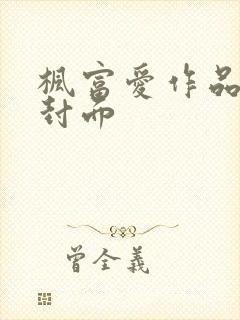 楓富愛作品
封面
曾全義